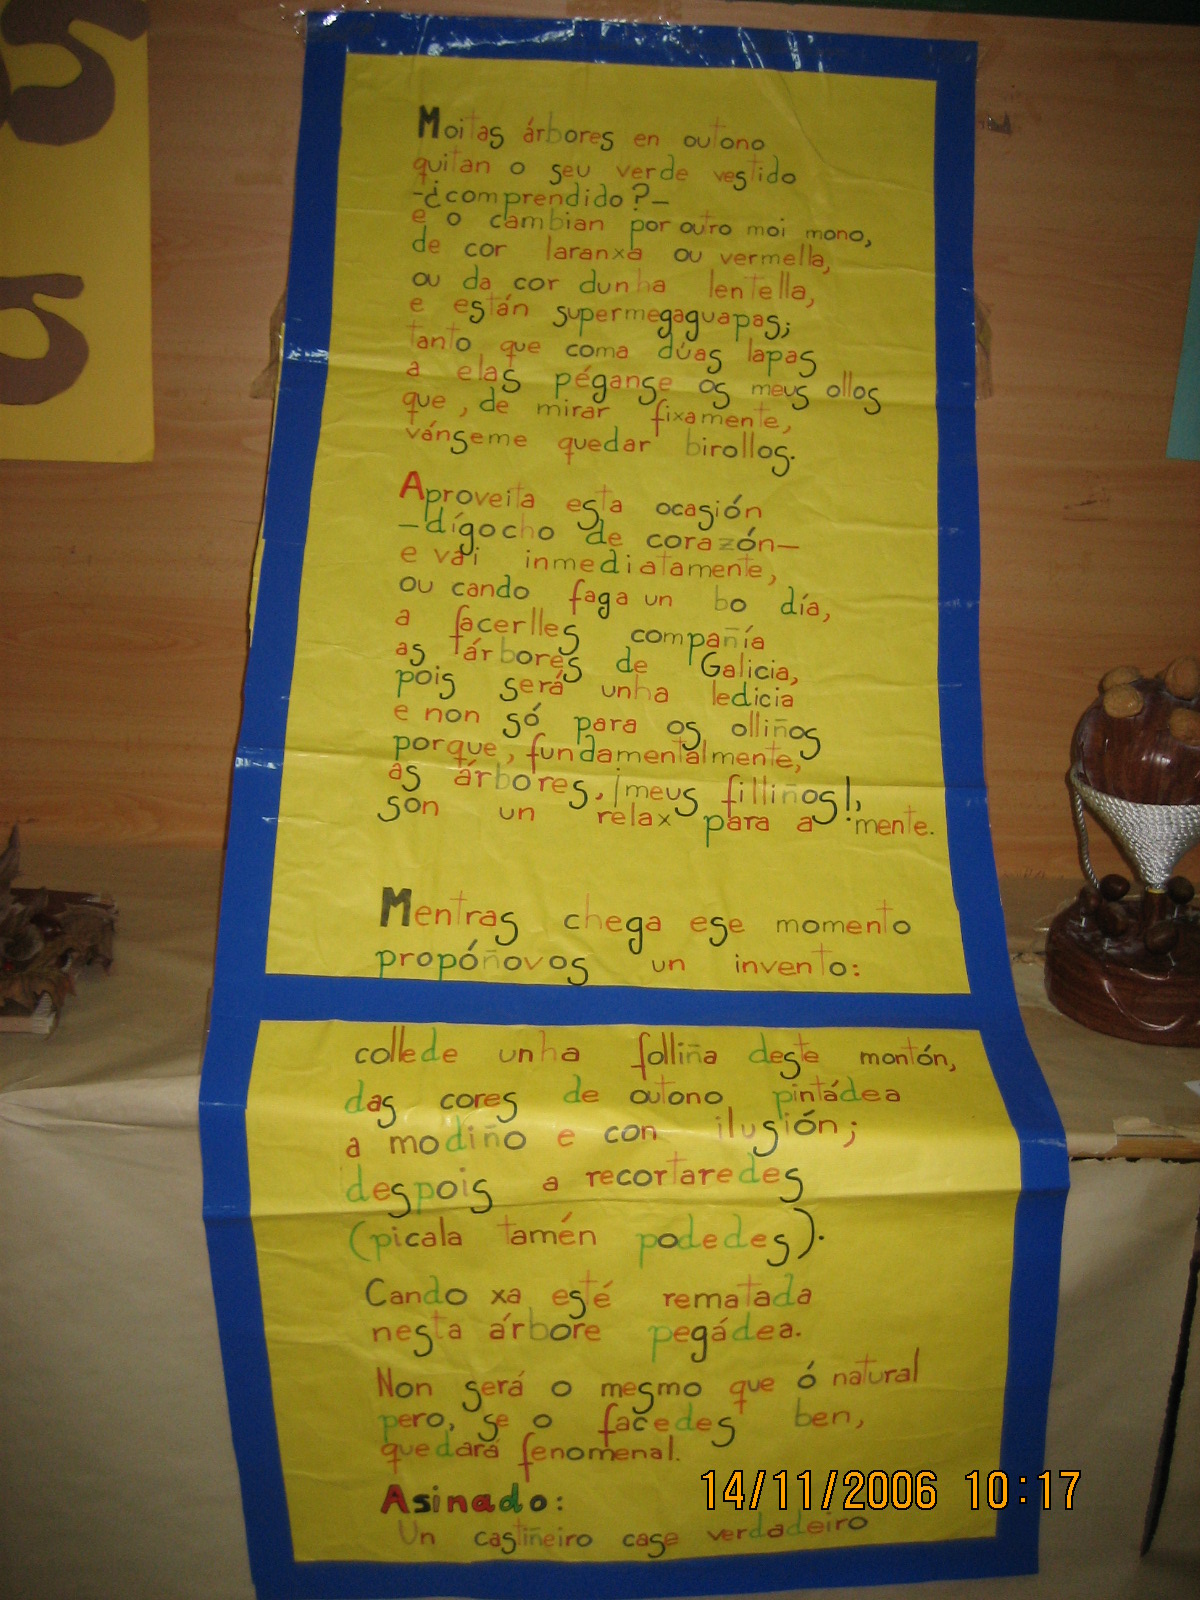 Moitas árbores en outono
quitan o seu verde vestido
-¿comprendido?-
e o cambian por outro moi mono,
de cor laranxa ou vermella,
ou da cor dunha lentella,
e están supermegaguapas;
tanto que coma dúas lapas
a elas péganse os meus ollos
que, de mirar fixamente,
vánseme quedar birollos.
Aproveita esta ocasión
-dígocho de corazón-
e vai inmediatamente,
ou cando faga un bo día,
a facerlles compañía
as árbores de Galicia,
pois será unha ledicia
e non só para os olliños
porque, fundamentalmente,
as árbores, ¡meus filliños!,
son un relax para a mente.
Mentras chega ese momento
propóñovos un invento:
collede unha folliña deste montón,
das cores de outono pintádea
a modiño e con ilusión;
despois a recortaredes
(picala tamén podedes).
Cando xa esté rematada
nesta árbore pegádea.
Non será o mesmo que ó natural
pero, se o facedes ben,
quedará fenomenal.
Asinado:
Un castiñeiro case verdadeiro
14/11/2006 10:17